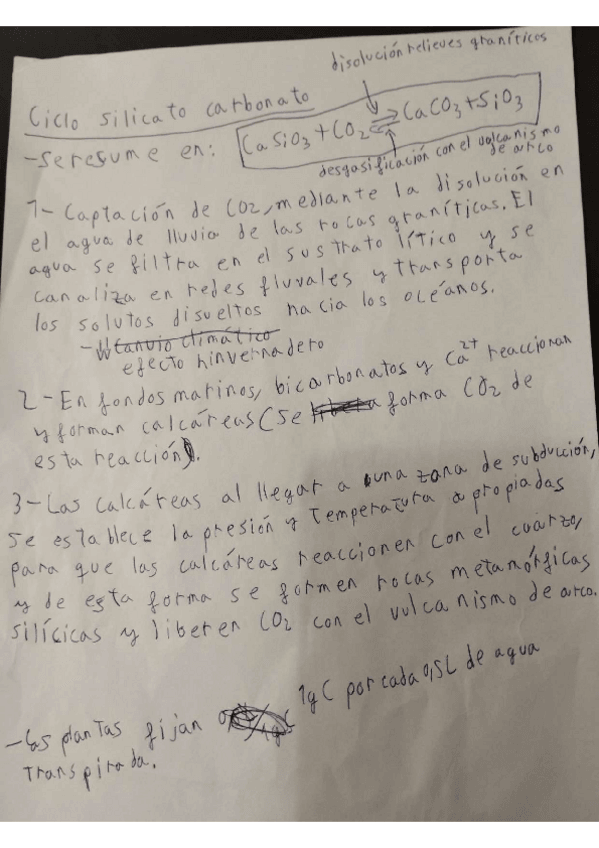 disolución relieves graníticos
Ciclo silicato carbonato
-se resume en: CaSiO3+CO2 ⇌ CaCO3+SiO3
desgasificación con el volcanismo
de arco
1- Captación de CO2, mediante la disolución en
el agua de lluvia de las rocas graníticas. El
agua se filtra en el sustrato lítico y se
canaliza en redes fluvales y transporta
los solutos disueltos hacia los océanos.
-↓↓ canvio climático
efecto hinvernadero
2- En fondos marinos, bicarbonatos y Ca2+ reaccionan
y forman calcáreas (se forma CO2 de
esta reacción).
3- Las calcáreas al llegar a una zona de subducción,
se establece la presión y temperatura apropiadas
para que las calcáreas reaccionen con el cuarzo,
y de esta forma se formen rocas metamórficas
silícicas y liberen CO2 con el vulcanismo de arco.
-las plantas fijan 1gC por cada 0,5L de agua
transpirada.